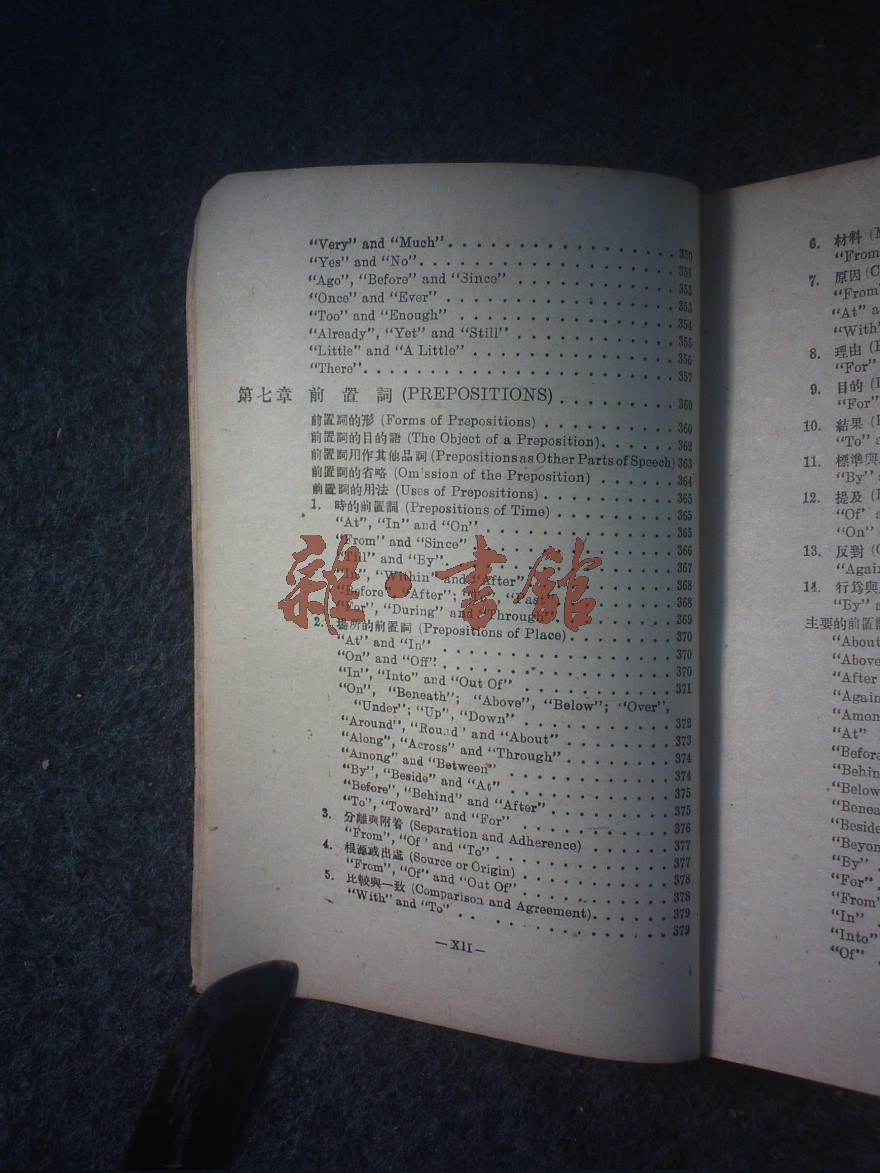 "Very" and "Much" . . . . . . . . . . . . . . . . 350
"Yes" and "No" . . . . . . . . . . . . . . . . 351
"Ago", "Before" and "Since" . . . . . . . . . . . . 353
"Once" and "Ever" . . . . . . . . . . . . . . . 353
"Too" and "Enough" . . . . . . . . . . . . . . . 354
"Already", "Yet" and "Still" . . . . . . . . . . . . 355
"Little" and "A Little" . . . . . . . . . . . . . . 356
"There" . . . . . . . . . . . . . . . . . . . 357
第七章 前置詞 (PREPOSITIONS) . . . . . . . . . 360
前置詞的形 (Forms of Prepositions) . . . . . . . . . . 360
前置詞的目的語 (The Object of a Preposition) . . . . . . 362
前置詞用作其他品詞 (Prepositions as Other Parts of Speech) 363
前置詞的省略 (Omission of the Preposition) . . . . . . . 364
前置詞的用法 (Uses of Prepositions) . . . . . . . . . . 365
1. 時的前置詞 (Prepositions of Time) . . . . . . . . . 365
"At", "In" and "On" . . . . . . . . . . . . . . 365
"From" and "Since" . . . . . . . . . . . . . . 366
"Till" and "By" . . . . . . . . . . . . . . . . 367
"In", "Within" and "After" . . . . . . . . . . . 368
"Before", "After"; "To", "Past" . . . . . . . . . 368
"For", "During" and "Through" . . . . . . . . . 369
2. 場所的前置詞 (Prepositions of Place) . . . . . . . . 370
"At" and "In" . . . . . . . . . . . . . . . . 370
"On" and "Off" . . . . . . . . . . . . . . . . 370
"In", "Into" and "Out Of" . . . . . . . . . . . . 371
"On", "Beneath"; "Above", "Below"; "Over",
"Under"; "Up", "Down" . . . . . . . . . . . . 372
"Around", "Round" and "About" . . . . . . . . . 373
"Along", "Across" and "Through" . . . . . . . . . 374
"Among" and "Between" . . . . . . . . . . . . . 374
"By", "Beside" and "At" . . . . . . . . . . . . . 375
"Before", "Behind" and "After" . . . . . . . . . . 375
"To", "Toward" and "For" . . . . . . . . . . . . 376
3. 分離與附着 (Separation and Adherence) . . . . . . . 377
"From", "Of" and "To" . . . . . . . . . . . . . 377
4. 根源或出處 (Source or Origin) . . . . . . . . . . 378
"From", "Of" and "Out Of" . . . . . . . . . . . 378
5. 比較與一致 (Comparison and Agreement) . . . . . . . 379
"With" and "To" . . . . . . . . . . . . . . . 379
— XII —
雜·書館
6. 材料
"From
7. 原因 (C
"From"
"At" a
"With"
8. 理由
"For"
9. 目的
"For"
10. 結果
"To" a
11. 標準與
"By"
12. 提及
"Of" a
"On"
13. 反對
"Again
14. 行爲與
"By" a
主要的前置詞
"About
"Above
"After
"Again
"Amon
"At"
"Before
"Behin
"Below
"Benea
"Beside
"Beyon
"By"
"For"
"From"
"In"
"Into"
"Of"